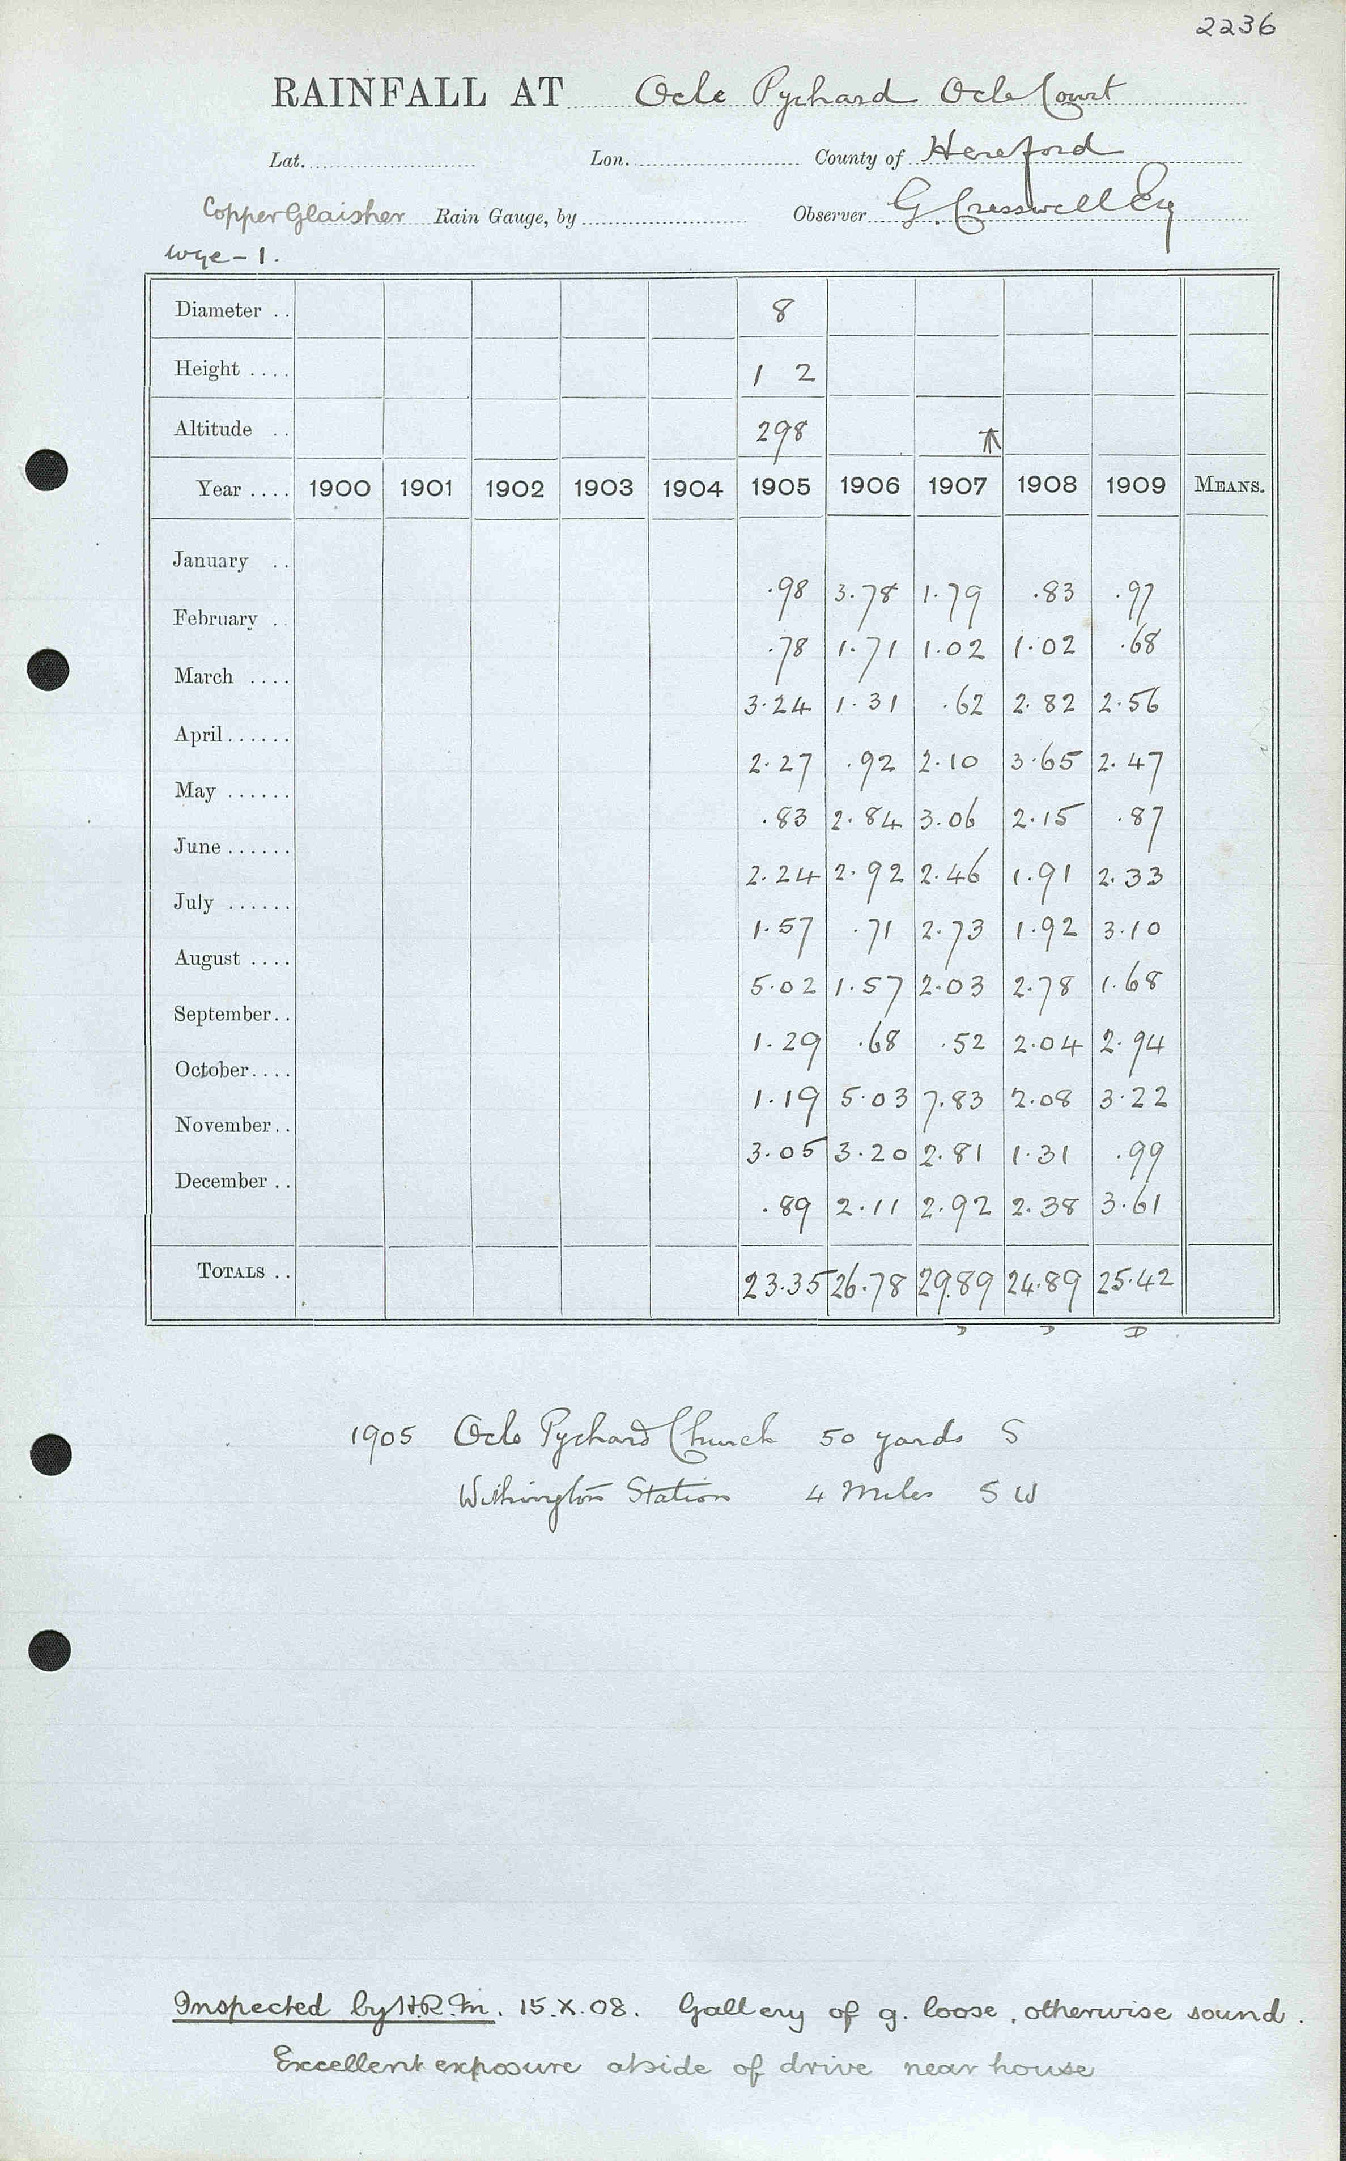 2236
RAINFALL AT Ocle Pychard Ocle Court
Lat. Lon. County of Hereford
Copper Glaisher Rain Gauge, by Observer G. Cresswell Esq
Wye - 1.
Diameter . . 8
Height . . . . 1 2
Altitude . . 298
Year . . . . 1900 1901 1902 1903 1904 1905 1906 1907 1908 1909 MEANS.
January . . .98 3.78 1.79 .83 .97
February . .78 1.71 1.02 1.02 .68
March . . . . 3.24 1.31 .62 2.82 2.56
April . . . . . . 2.27 .92 2.10 3.65 2.47
May . . . . . . .83 2.84 3.06 2.15 .87
June . . . . . . 2.24 2.92 2.46 1.91 2.33
July . . . . . . 1.57 .71 2.73 1.92 3.10
August . . . . 5.02 1.57 2.03 2.78 1.68
September . . 1.29 .68 .52 2.04 2.94
October . . . . 1.19 5.03 7.83 2.08 3.22
November . . 3.05 3.20 2.81 1.31 .99
December . . .89 2.11 2.92 2.38 3.61
TOTALS . . 23.35 26.78 29.89 24.89 25.42
1905 Ocle Pychard Church 50 yards S
Withington Station 4 Miles S W
Inspected by H.R.M. 15.X.08. Gallery of g. loose, otherwise sound.
Excellent exposure at side of drive near house